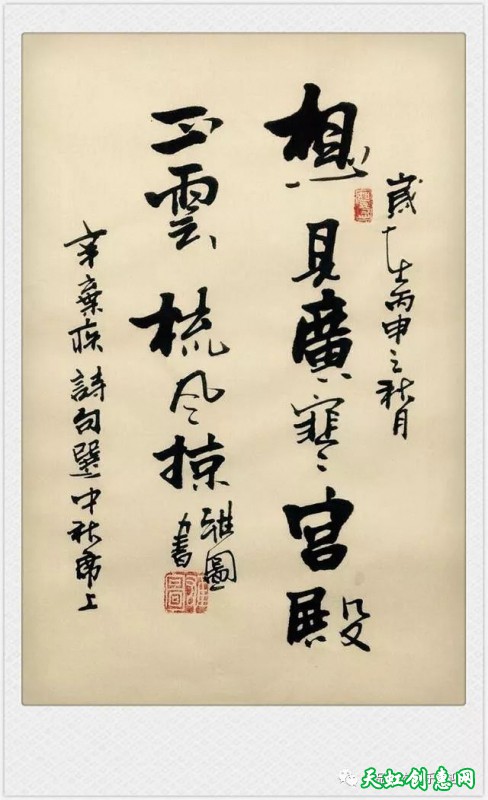 歲在丙申之秋月
想見廣寒宮殿
正雲梳风掠
雅圖
書
辛棄疾詩句選中秋席上
天虹创意网